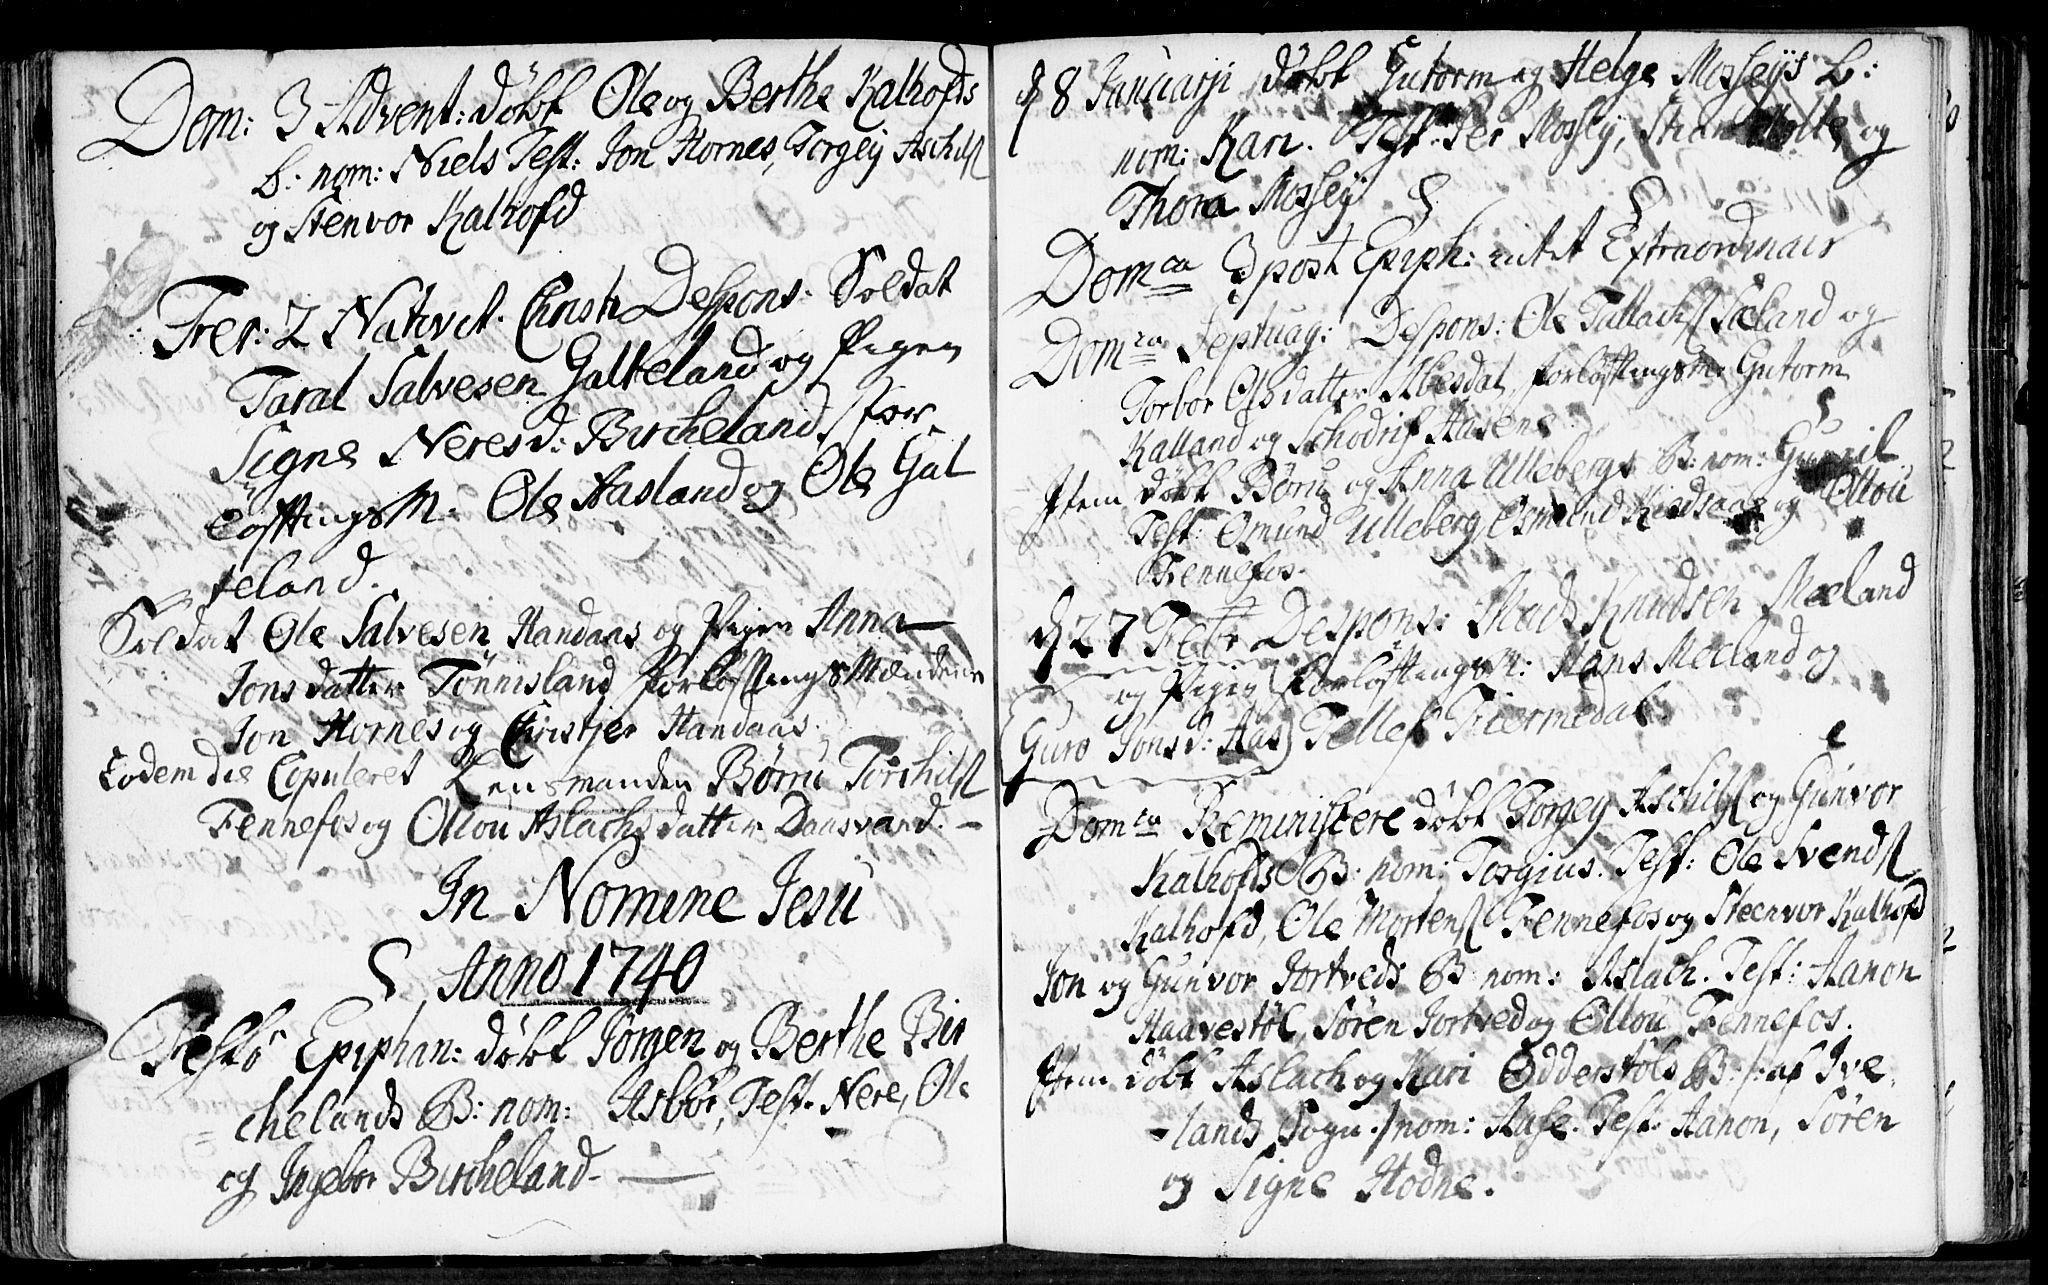 Dom: 3 Advent: döbt Ole og Berthe Kalhofds
b: nom: Niels Test: Jon Hornes, Torgey Aschilss
og Stenvor Kalhofd
Fer: 2 Nativit. Christi Despons: Soldat
Taral Salvesen Galteland og Pigen
Signe Neresd: Bircheland, for
löftingsM. Ole Aasland og Ole Gal
teland.
Soldat Ole Salvesen Handaas og Pigen Anna
Jonsdatter Tönnisland forlöftingsMændene
Jon Hornes og Christjer Handaas.
Eodem die Copuleret Lensmanden Börru Torchilss
Fennefos og Ollou Aslachsdatter Daasvand. -
In Nomine Jesu
Anno 1740
Festo Epiphan: döbt Jörgen og Berthe Bir
chelands B: nom: Asbör, Test. Nere, Ole
og Ingebor Bircheland-
d 8 Januarji döbt Gutorm og Helge Mosseys b:
nom: Kari. Test: Per Mossey, og
Thora Mossey
Domca 3 post Epiph: intet Extraordinair
Domca Septuag: Despons: Ole Tallachss Sæland og
Torbor Olsdatter Abesdal, forlöftingsM: Gutorm
Kalland og Schodrif Aasene
Item döbt Börru og Anna Ullebergs B: nom: Gunnil
Test: Omund Ulleberg Osmund og Ollou
Fennefos.
d 27 Febr Despons: Mads Knudsen Mæland
og Pigen forlöftingsM: Hans Mæland og
Guro Jonsd: Aas) Tellef Tiermedal.
Domca Reminiscere döbt Torgey Aschilss og Gunvor
Kalhofds B: nom: Torgius. Test: Ole Svendss
Kalhofd, Ole Mortenss Fennefos og Steenvor Kalhofd
Jon og Gunvor Jortveds B: nom: Aslach. Test: Aanon
Haavestöl, Sören Jortved og Ollou Fennefos.
Item döbt Aslach og Kari Odderstöls B: /: af Ive
-lands Sogn./ nom: Aase. Test: Aanon, Sören
og Signe Hodne.